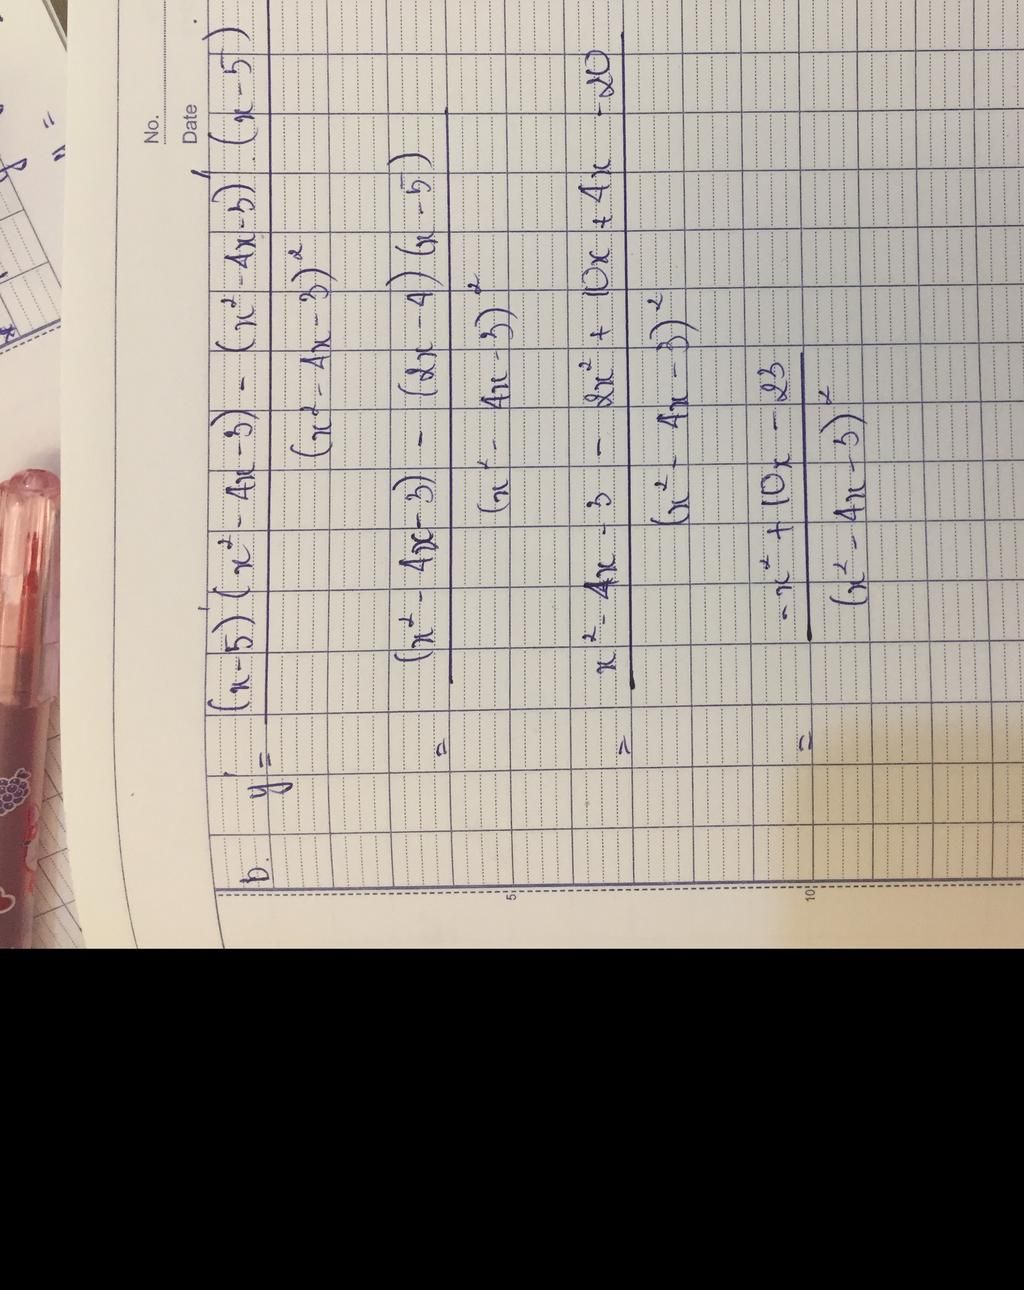 No.
Date
b. y' = (x-5)'(x² - 4x - 3) - (x² - 4x - 3)'(x-5)
(x² - 4x - 3)²
= (x² - 4x - 3) - (2x - 4)(x - 5)
5
(x² - 4x - 3)²
= x² - 4x - 3 - 2x² + 10x + 4x - 20
(x² - 4x - 3)²
= -x² + 10x - 23
10
(x² - 4x - 3)²